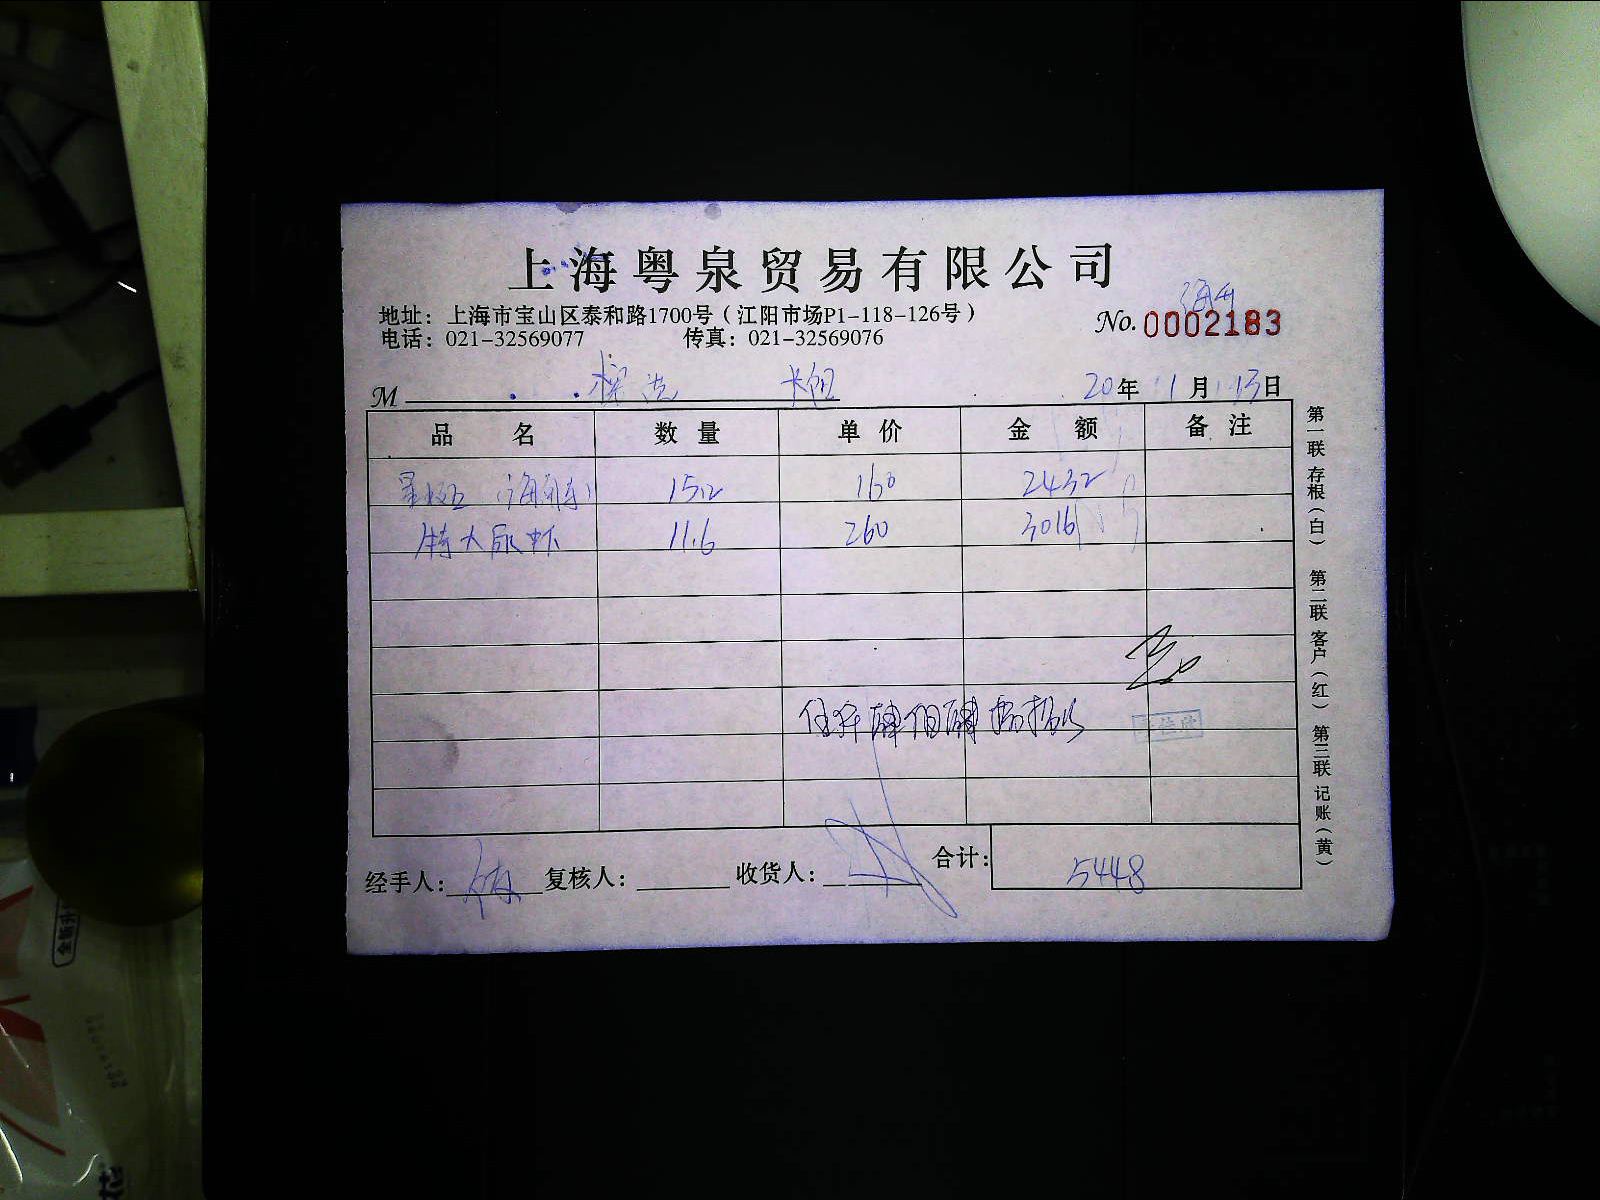 上海粤泉贸易有限公司
地址：上海市宝山区泰和路1700号（江阳市场P1-118-126号）
电话：021-32569077 传真：021-32569076
No. 0002183
M 20年 11月 13日
品名 数量 单价 金额 备注
15.2 160 2432
特大尿虾 11.6 260 3016
经手人： 复核人： 收货人： 合计： 5448
第一联 存根（白） 第二联 客户（红） 第三联 记账（黄）